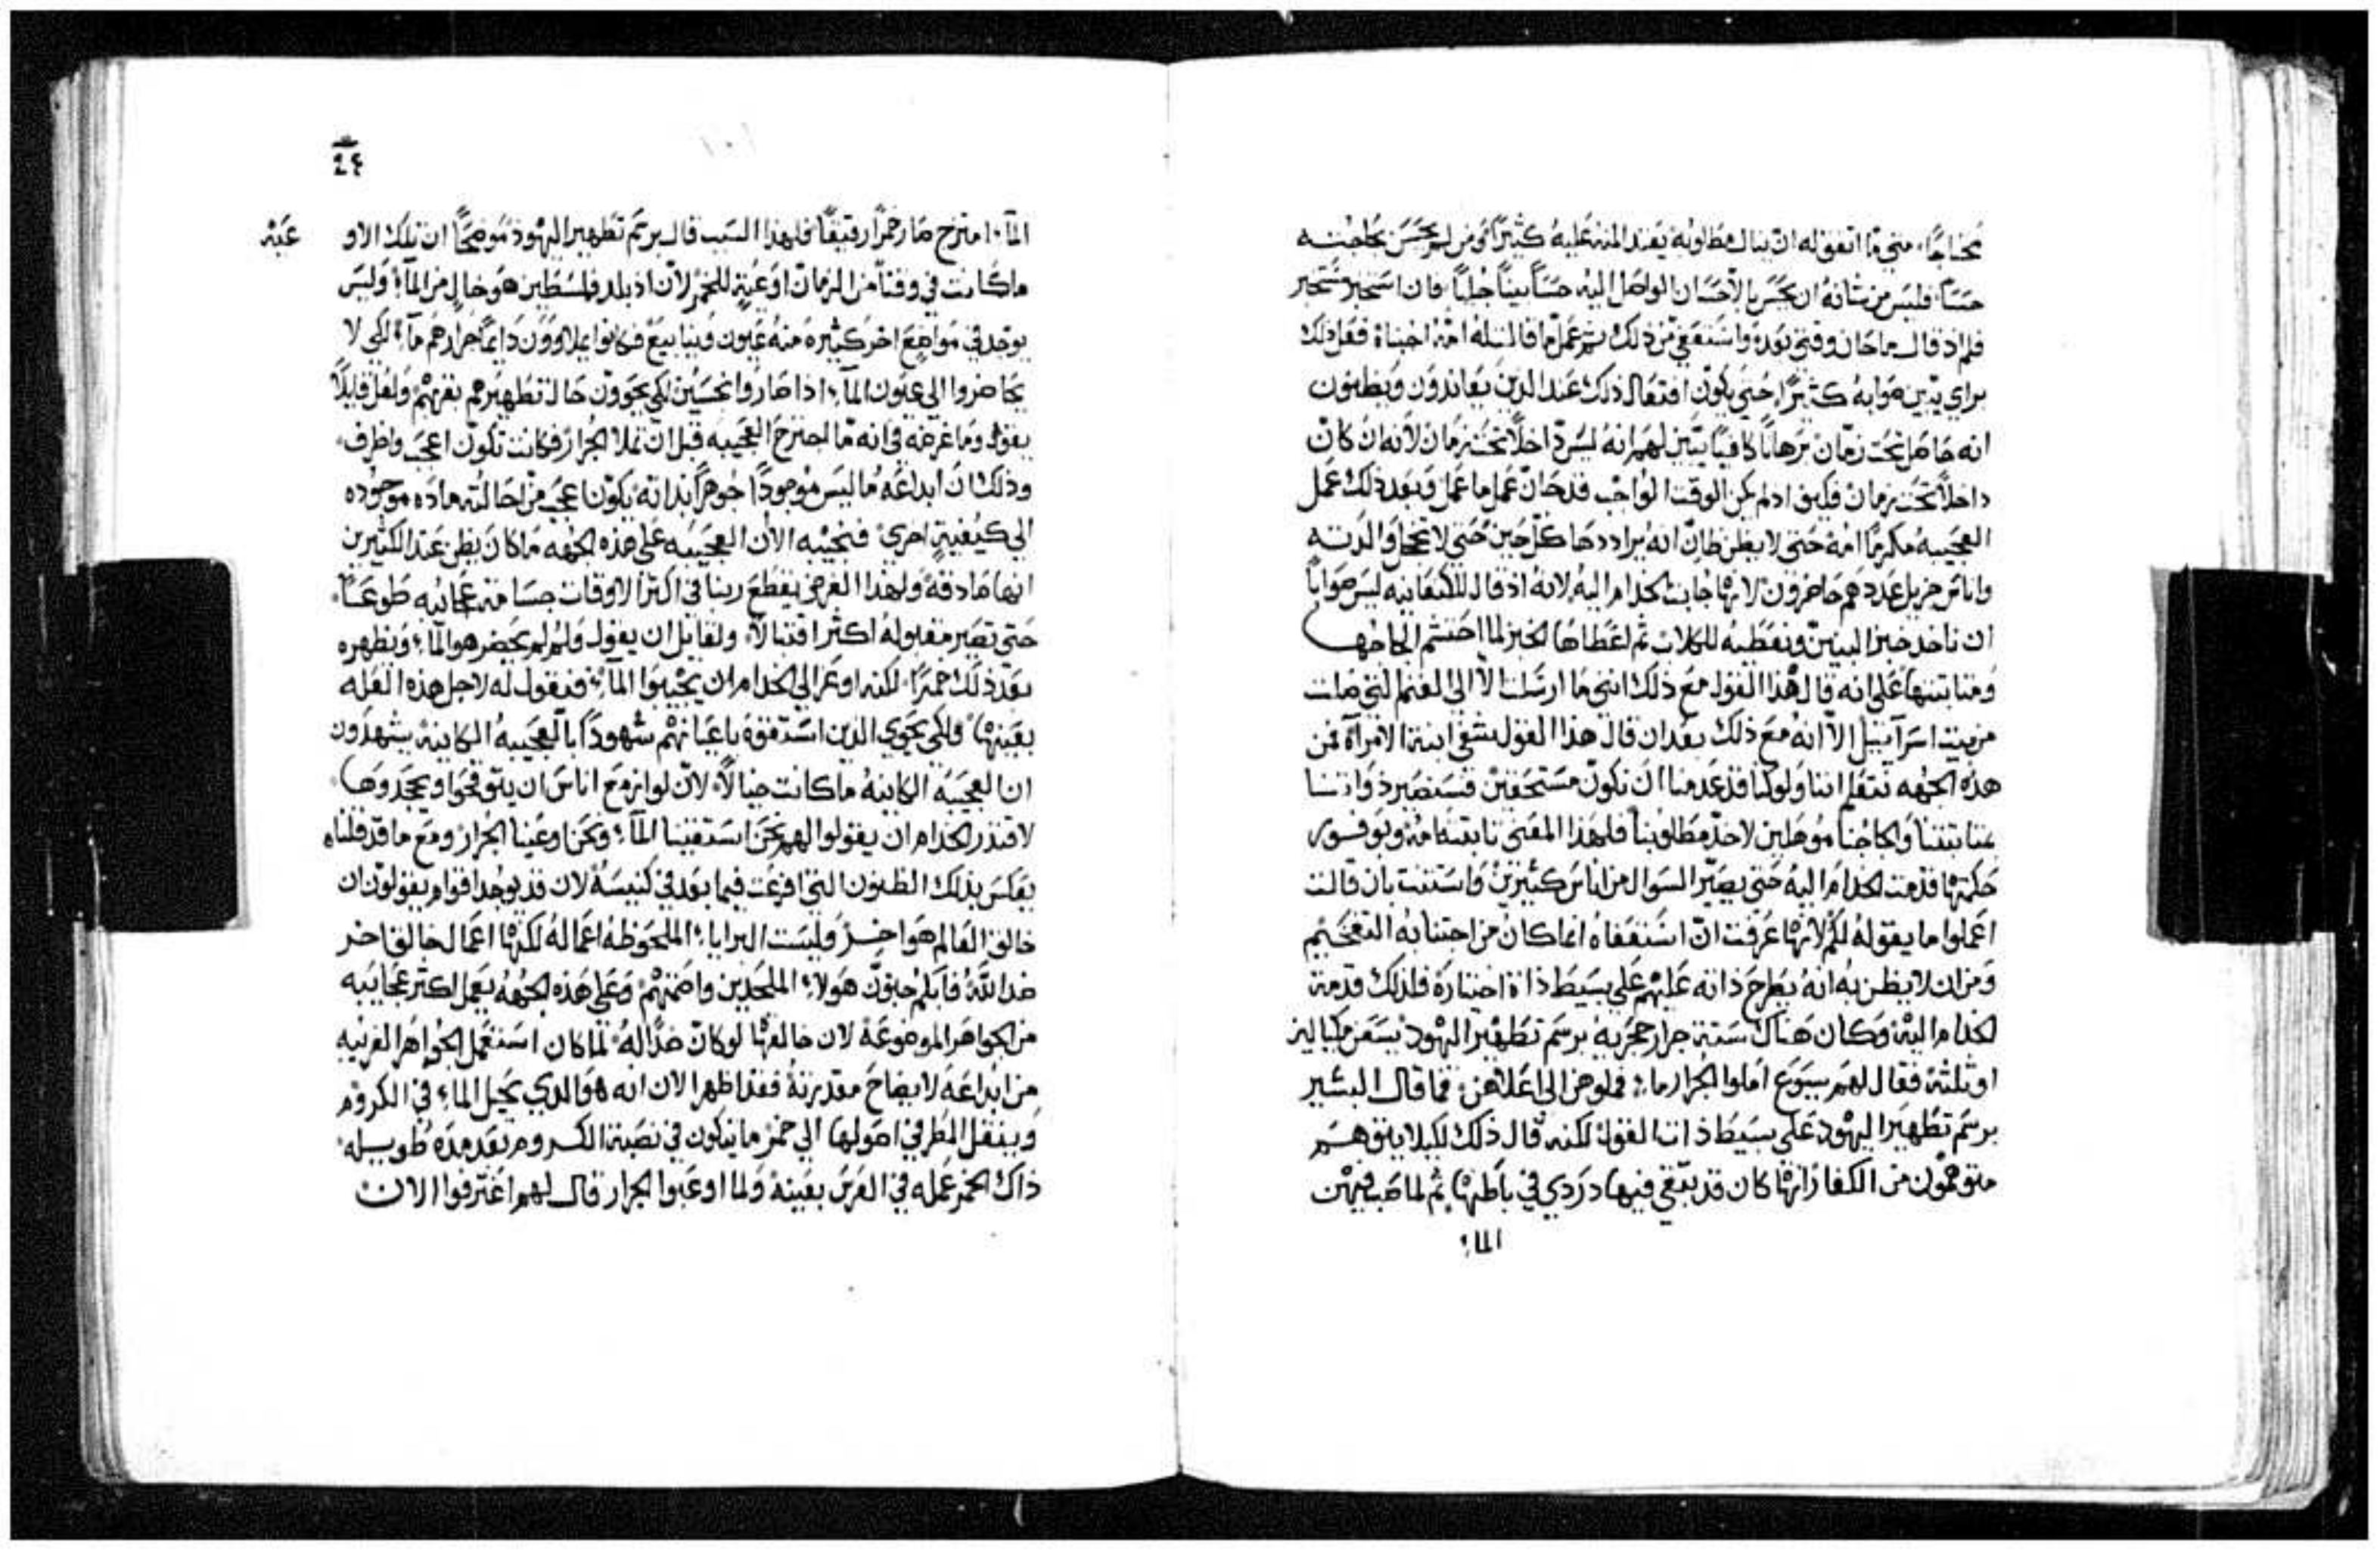 محتاجًا، متي ما اتفق له ان ينال مطلوبه يعتد المنه عليه كثيرًا ومن لم يحس بحاجته
حسًا فليس من شانه ان يحس بالاحسان الواصل اليه حسًا بينًا جليًا فان استخبر مستخبر
فلم اذ قال ما حان وقتي بعد واستعفي من ذلك ثم عمل ما قالت له امه اجبناه فعل ذلك
براي يبين صوابه كثيرًا حتي يكون افتعال ذلك عند الذين يعاندون ويظنون
انه حاصل تحت زمان برهانًا كافيًا يبين لهم انه ليس داخلًا تحت زمان لانه ان كان
داخلًا تحت زمان فكيف اذ لم يكن الوقت الواجب قد حان عمل ما عمل وبعد ذلك عمل
العجيبه مكرمًا امه حتي لا يظن ظان انه يراددها كل حين حتي لا تخجل والدته
واناس جزيل عددهم حاضرون لانها جابت الخدام اليه لانه اذ قال للكنعانيه ليس صوابًا
ان ناخذ خبز البنين ونعطيه للكلاب ثم اعطاها الخبز لما احتشم الحاحها
ومتابتتها علي انه قال هذا القول مع ذلك انني ما ارسلت الا الى الغنم التي ضلت
من بيت اسرآييل الا انه مع ذلك بعد ان قال هذا القول شفي ابنة الامرآة فمن
هذه الجهه نتعلم اننا ولو كنا قد عدمنا ان نكون مستحقين فسنصير ذواتنا
بمثابتتنا والحاحنا موهلين لاخذ مطلوبنا فلهذا المعني تابتته امه وبوفور
حكمتها قدمت الخدام اليه حتي يصير السوال من اناس كثيرين واستثنت بان قالت
اعملوا ما يقوله لكم لانها عرفت ان استعفاه انما كان من اجتنابه التفخيم
ومن ان لا يظن به انه يطرح ذاته عليهم علي بسيط ذاة اختياره فلذلك قدمة
الخدام اليه وكان هناك ستة جرار حجريه برسم تطهير اليهود يسعن مكيالين
او ثلثة فقال لهم يسوع املوا الجرار ماء فملوهن الى اعلاهن فما قال البشير
برسم تطهير اليهود علي بسيط ذات القول لكنه قال ذلك لكيلا يتوهم
متوهمون من الكفار انها كان قد بقي فيها دردي في باطنها ثم لما صب فيهن
الماء
٢٤
المآء امتزج صار خمرًا رقيقًا فلهذا السبب قال برسم تطهير اليهود موضحًا ان تلك الاو عيه
ما كانت في وقتًا من الزمان اوعية للخمر لان اذ بلد فلسطين هو خالٍ من المآء وليس
يوجد في مواضع اخر كثيره منه عيون وينابيع فكانوا يملاوون دايمًا جرارهم مآء لكي لا
يحاضروا الي عيون المآء اذا صاروا نجسين لكي يحوون حال تطهيرهم بقربهم ولعل قايلًا
يقول وما غرضه في انه ما اجترح العجيبه قبل ان تملا الجرار فكانت تكون اعجب واظرف
وذلك ان ابداعه ما ليس موجودًا جوهرًا بذاته يكون اعجب من احالته ماده موجوده
الي كيفيةٍ اخري فنجيبه الان العجيبه علي هذه الجهه ما كان يظن عند الكثيرين
انها صادقه ولهذا الغرض يقطع ربنا في اكثر الاوقات جسامة عجائبه طوعًا
حتي تصير مقبوله اكثر اقتبالًا ولقايل ان يقول ولم لم يحضر هو المآء ويظهره
بعد ذلك خمرًا لكنه اوعز الي الخدام ان يجيبوا المآء فنقول له لاجل هذه العله
بعينها ولكي يحوي الذين استقوه باعيانهم شهودًا بالعجيبه الكاينة يشهدون
ان العجيبه الكاينه ما كانت خيالًا لان لو ازمع اناس ان يتوقحوا ويجحدوها
لاقتدر الخدام ان يقولوا لهم نحن استقينا المآء ونحن اوعينا الجرار ومع ما قد قلناه
يعكس بذلك الظنون التي افرعت فيما بعد في كنيسةً لان قد يوجد اقوام يقولون ان
خالق العالم هو اخر وليست البرايا الملحوظه اعماله لكنها اعمال خالق اخر
ضد الله فابلم جنون هولاء الملحدين واصمتهم وعلي هذه الجهه يعمل اكثر عجايبه
من الجواهر الموضوعة لان خالقها لو كان ضدًا له لما كان استعمل الجواهر الغريبه
من ابداعه لايضاح مقدرته فقد اظهر الان انه هو الذي يحيل الماء في الكروم
وينقل المطر في اصولها الي خمر ما يتكون في نصبة الكروم بعد مدة طويله
ذاك الخمر عمله في العرس بعينه ولما اوعبوا الجرار قال لهم اغترفوا الان